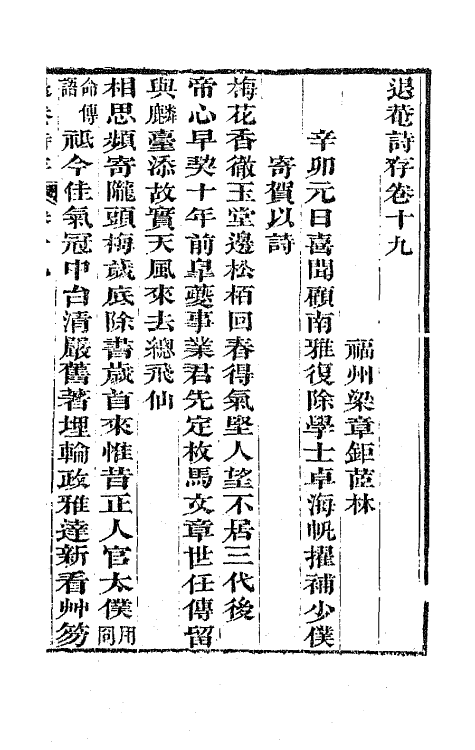 退菴詩存卷十九
福州梁章鉅茝林
辛卯元日喜聞顧南雅復除學士卓海帆擢補少僕
寄賀以詩
梅花香徹玉堂邊松栢回春得氣堅人望不居三代後
帝心早契十年前皐夔事業君先定枚馬文章世任傳留
與麟臺添故實天風來去總飛仙
相思頻寄隴頭梅歲底除書歲首來惟昔正人官太僕用冏
命傳語祗今佳氣冠中台清嚴舊著埋輪政雅達新看艸笏